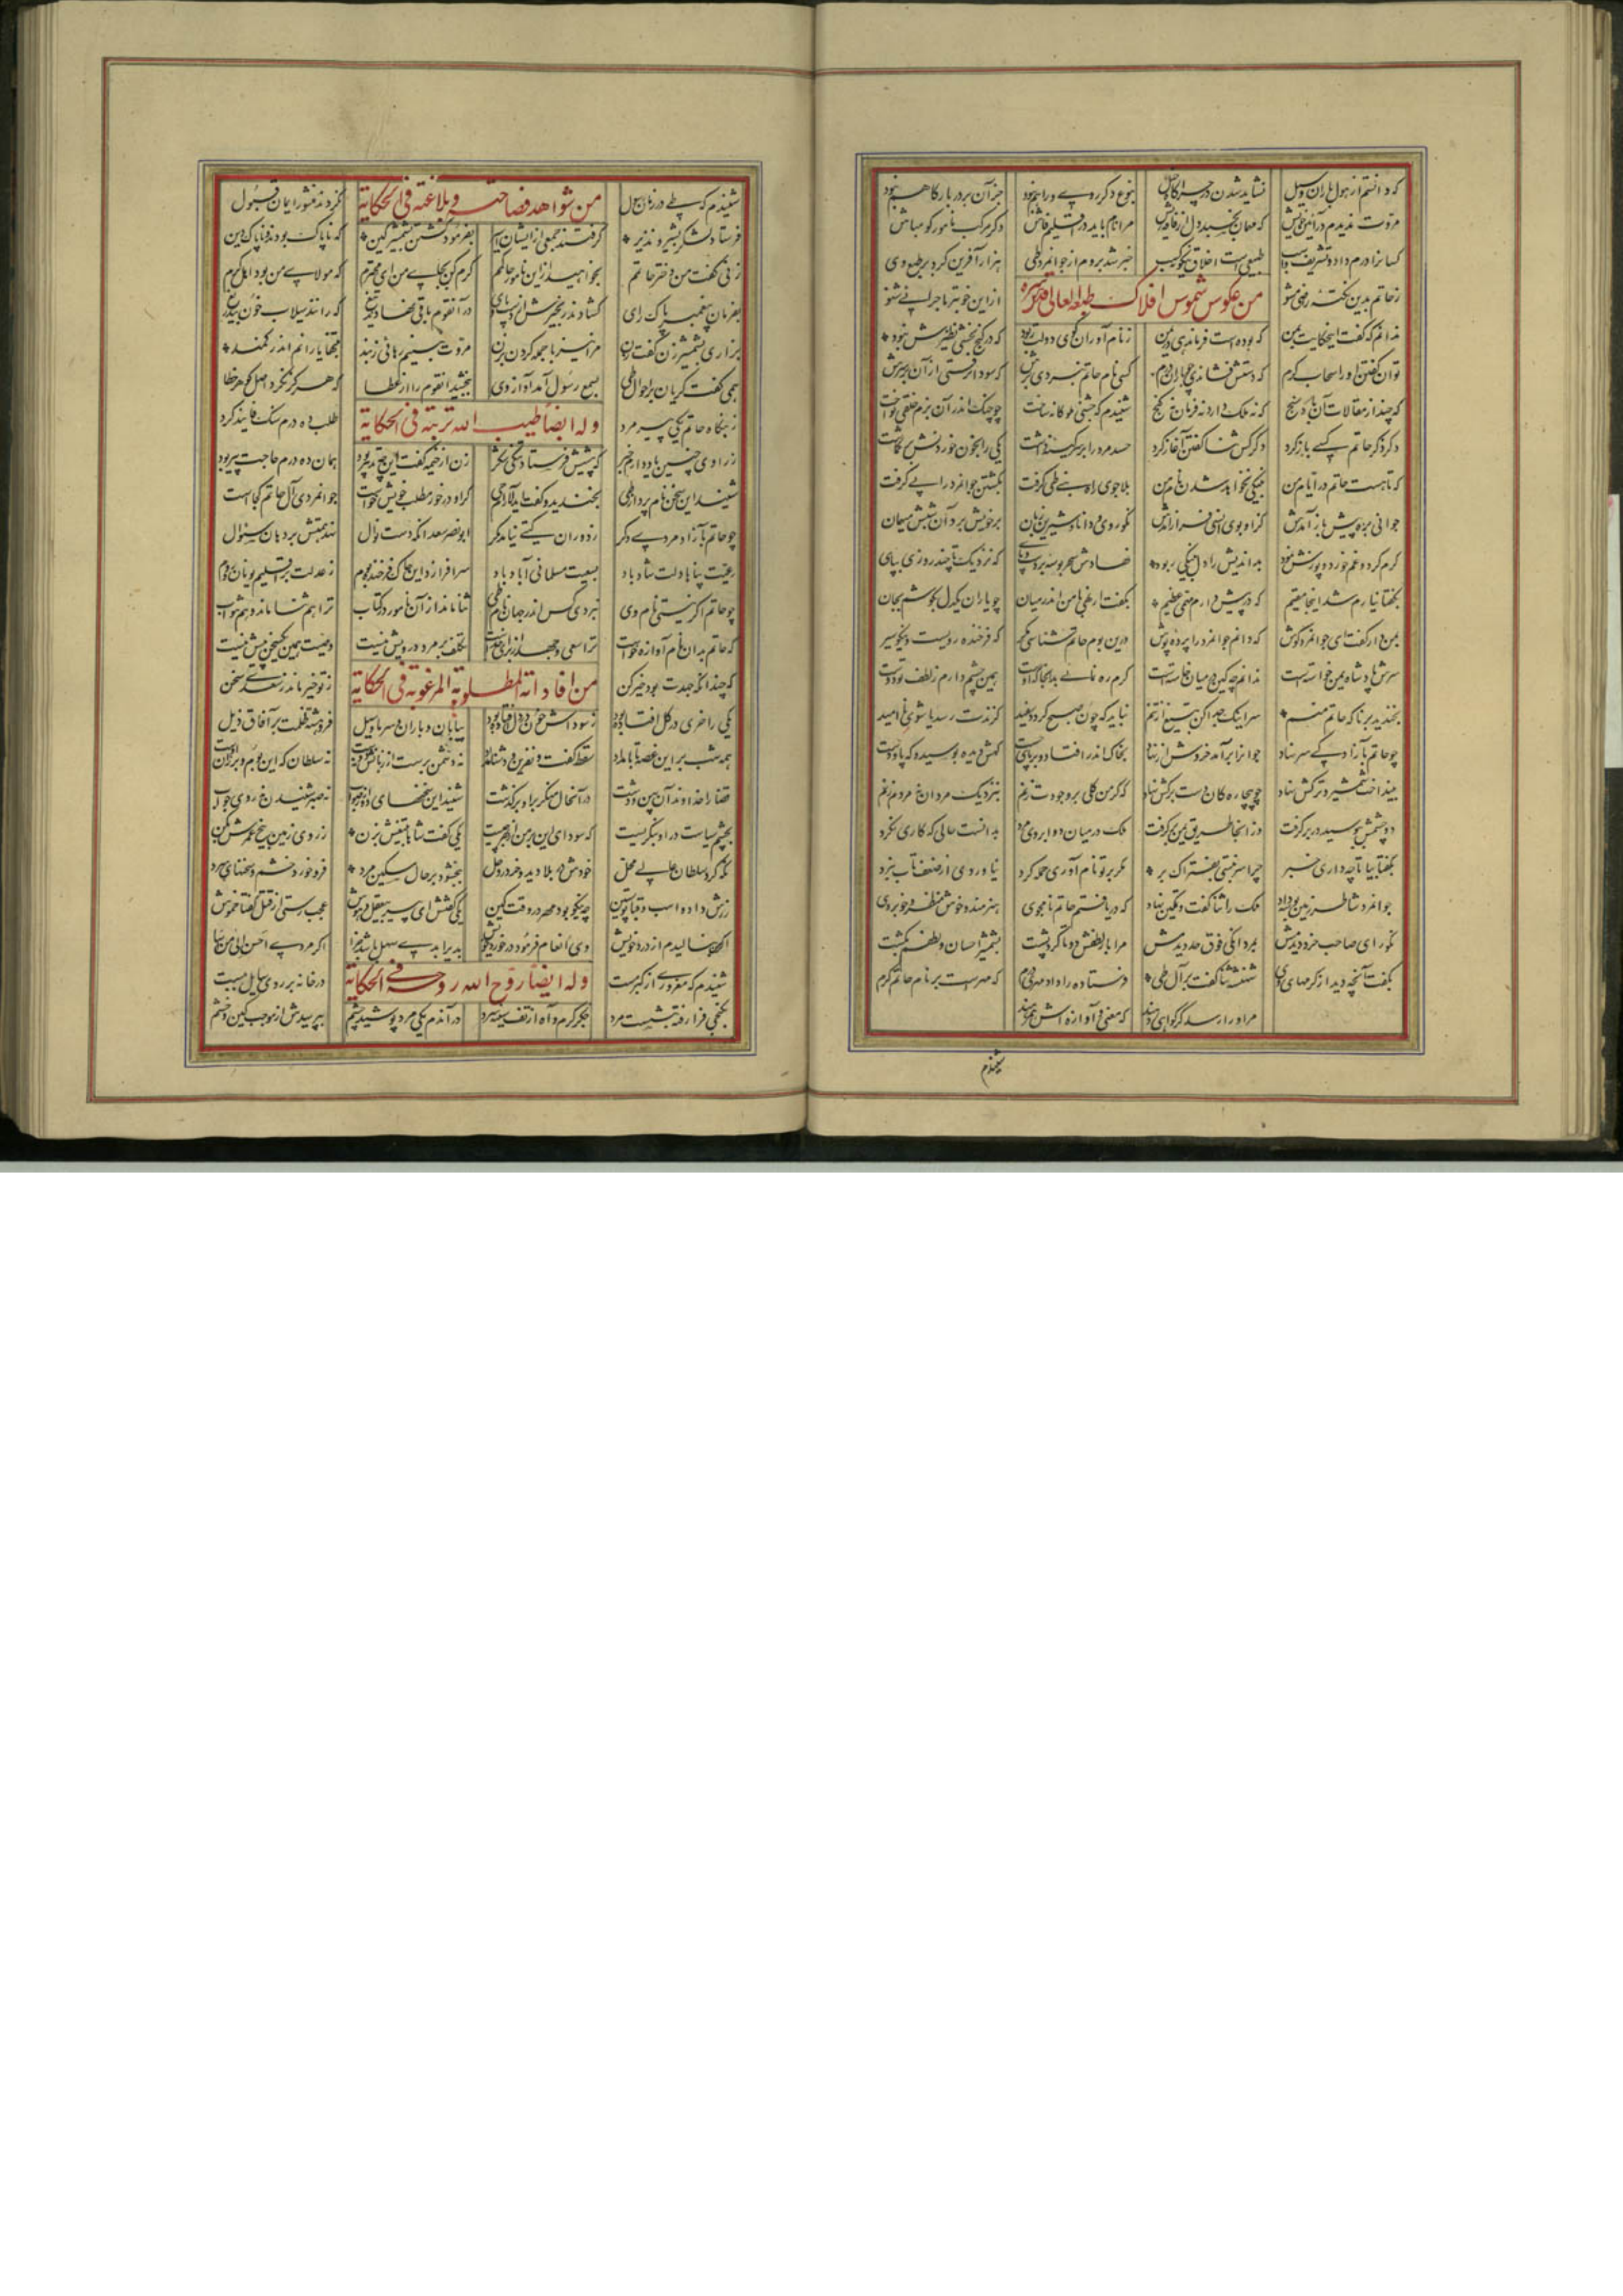 که دانستم از هول باران و سیل نشاید شدن در چراگاه خیل بنوع دگر روی و راهم نبود جز آن بر در بارگاهم نبود
مروت ندیدم در آئین خویش که مهمان بخسبد دل از فاقه ریش مرا نام باید در اقلیم فاش دگر مرکب نامور گو مباش
کسانرا درم داد و تشریف و اسب طبیعی است اخلاق نیکو نه کسب خبر شد بروم از جوانمرد طی هزار آفرین کرد بر طبع وی
ز حاتم بدین نکته راضی مشو من عکوس شموس افلاک طبعه العالی ازاین خوبتر ماجرایی شنو
ندانم که گفت اینحکایت بمن که بوده است فرماندهی در یمن ز نام آوران گوی دولت ربود که در گنج بخشی نظیرش نبود
توان گفتن او را سحاب کرم که دستش فشاندی چو باران درم کسی نام حاتم نبردی برش که سودا نرفتی از آن بر سرش
که چند از مقالات آن باد سنج که نه ملک دارد نه فرمان نه گنج شنیدم که جشنی ملوکانه ساخت چو چنگ اندر آن بزم خلقی نواخت
در ذکر حاتم کسی باز کرد دگر کس ثنا گفتن آغاز کرد حسد مرد را بر سر کینه داشت یکی را بخون خوردنش بر گماشت
که تا هست حاتم در ایام من بنیکی نخواهد شدن نام من بلا جوی راه بنی طی گرفت بکشتن جوانمرد را پی گرفت
جوانی بره پیش باز آمدش کزاو بوی انسی فراز آمدش نکو روی و دانا و شیرین زبان بر خویش برد آن شبش میهمان
کرم کرد و غم خورد و پوزش نمود بد اندیش را دل بنیکی ربود نهادش سحر بوسه بر دست و پای که نزدیک ما چند روزی بپای
بگفتا نیارم شد اینجا مقیم که در پیش دارم مهمی عظیم بگفت ار نهی با من اندر میان چو یاران یکدل بکوشم بجان
بمن دار گفت ای جوانمرد گوش که دانم جوانمرد را پرده پوش درین بوم حاتم شناسی مگر که فرخنده رویست و نیکو سیر
سرش پادشاه یمن خواسته است ندانم چه کین در میان خاسته است گرم ره نمائی بدانجا که اوست همین چشم دارم ز لطف تو دوست
بخندید برنا که حاتم منم سر اینک جدا کن بتیغ از تنم نباید که چون صبح گردد سفید گزندت رسد یا شوی نا امید
چو حاتم بآزادگی سر نهاد جوانرا برآمد خروش از نهاد بخاک اندر افتاد و بر پای جست گهش دیده بوسید و گه پا و دست
بینداخت شمشیر و ترکش نهاد چو بیچارگان دست بر کش نهاد که گر من گلی بر وجودت زنم بنزدیک مردان نه مردم زنم
دو چشمش ببوسید و در بر گرفت وز آنجا طریق یمن بر گرفت ملک در میان دو ابروی مرد بدانست حالی که کاری نکرد
بگفتا بیا تا چه داری خبر چرا سر نبستی بفتراک بر مگر بر تو نام آوری حمله کرد نیاوردی از ضعف تاب نبرد
جوانمرد شاطر زمین بوسه داد ملک را ثنا گفت و تمکین نهاد که دریافتم حاتم نامجوی هنرمند و خوش منظر و خوبروی
نکو رای و صاحب خرد دیدمش بمردانگی فوق خود دیدمش مرا بار لطفش دو تا کرد پشت بشمشیر احسان و لطفم بکشت
بگفت آنچه دید از کرمهای وی شهنشه ثنا گفت بر آل طی فرستاده را داد مهری درم که مهر است بر نام حاتم کرم
مر او را رسد گر گواهی دهند که معنی و آوازه اش همرهند
شنیدم
شنیدم که طی در زمان رسول من شواهد فصاحته و بلاغته فی الحکایة نکردند منشور ایمان قبول
فرستاد لشکر بشیر و نذیر گرفتند جمعی از ایشان اسیر بفرمود کشتن بشمشیر کین که ناپاک بودند و ناپاک دین
زنی گفت من دختر حاتمم بخواهید ازاین نامور حاکمم کرم کن بجای من ای محترم که مولای من بود اهل کرم
بفرمان پیغمبر پاک رای گشادند زنجیرش از دست و پای در آنقوم باقی نهادند تیغ که رانند سیلاب خون بیدریغ
بزاری بشمشیر زن گفت زن مرا نیز با جمله گردن بزن مروت نبینم رهائی ز بند بتنها و یارانم اندر کمند
همی گفت گریان بر احوال طی بسمع رسول آمد آواز وی ببخشید آنقوم را از عطا که هرگز نکرد اصل گوهر خطا
ز بنگاه حاتم یکی پیر مرد وله ایضا طیب الله تربته فی الحکایة طلب ده درم سنگ فانید کرد
ز راوی چنین یاد دارم خبر که پیشش فرستاد تنگی شکر زن از خیمه گفت این چه تدبیر بود همان ده درم حاجت پیر بود
شنید این سخن نام بردار طی بخندید و گفت ای دلارام حی گر او در خور مطلب خویش خواست جوانمردی آل حاتم کجا است
چو حاتم بآزاد مردی دگر ز دوران گیتی نیامد مگر ابو نصر سعد آنکه دست نوال نهد همتش بر دهان سئوال
رعیت پناها دلت شاد باد بسعیت مسلمانی آباد باد سر افرازد این خاک فرخنده بوم ز عدلت بر اقلیم یونان و روم
چو حاتم اگر نیستی نام وی نبردی کس اندر جهان نام طی ثنا ماند از آن نامور در کتاب ترا هم ثنا ماند و هم ثواب
که حاتم بدان نام و آوازه خواست ترا سعی و جهد از برای خداست تکلف بر مرد درویش نیست وصیت همین یکسخن بیش نیست
که چندانکه جهدت بود خیر کن من افاداته المطلوبة المرغوبة فی الحکایة ز تو خیر ماند ز سعدی سخن
یکی را خری در گل افتاده بود ز سوداش خون در دل افتاده بود بیابان و باران و سرما و سیل فروهشته ظلمت بر آفاق ذیل
همه شب بر این غصه تا بامداد سقط گفت و نفرین و دشنام داد نه دشمن برست از زبانش نه دوست نه سلطان که این بوم و بر زان اوست
قضا را خداوند آن پهن دشت در آنحال منکر بر او بر گذشت شنید این سخنهای دور از صواب نه صبر شنیدن نه روی جواب
بچشم سیاست در او بنگریست که سودای این بر من از بهر چیست یکی گفت شاها بتیغش بزن ز روی زمین بیخ عمرش بکن
نگه کرد سلطان عالی محل خودش در بلا دید و خر در وحل ببخشود بر حال مسکین مرد فرو خورد خشم سخنهای سرد
زرش داد و اسب و قبا پوستین چه نیکو بود مهر در وقت کین یکی گفتش ای پیر بیعقل و هوش عجب رستی از قتل گفتا خموش
اگر من بنالیدم از درد خویش وی انعام فرمود در خورد خویش بدیرا بدی سهل باشد جزا اگر مردی احسن الی من اسا
شنیدم که مغروری از کبر مست وله ایضا روح الله روحه فی الحکایة در خانه بر روی سایل ببست
بکنجی فرو رفت و بنشست مرد جگر گرم و آه از تف سینه سرد در آندم یکی مرد پوشیده چشم بپرسیدش از موجب کین و خشم